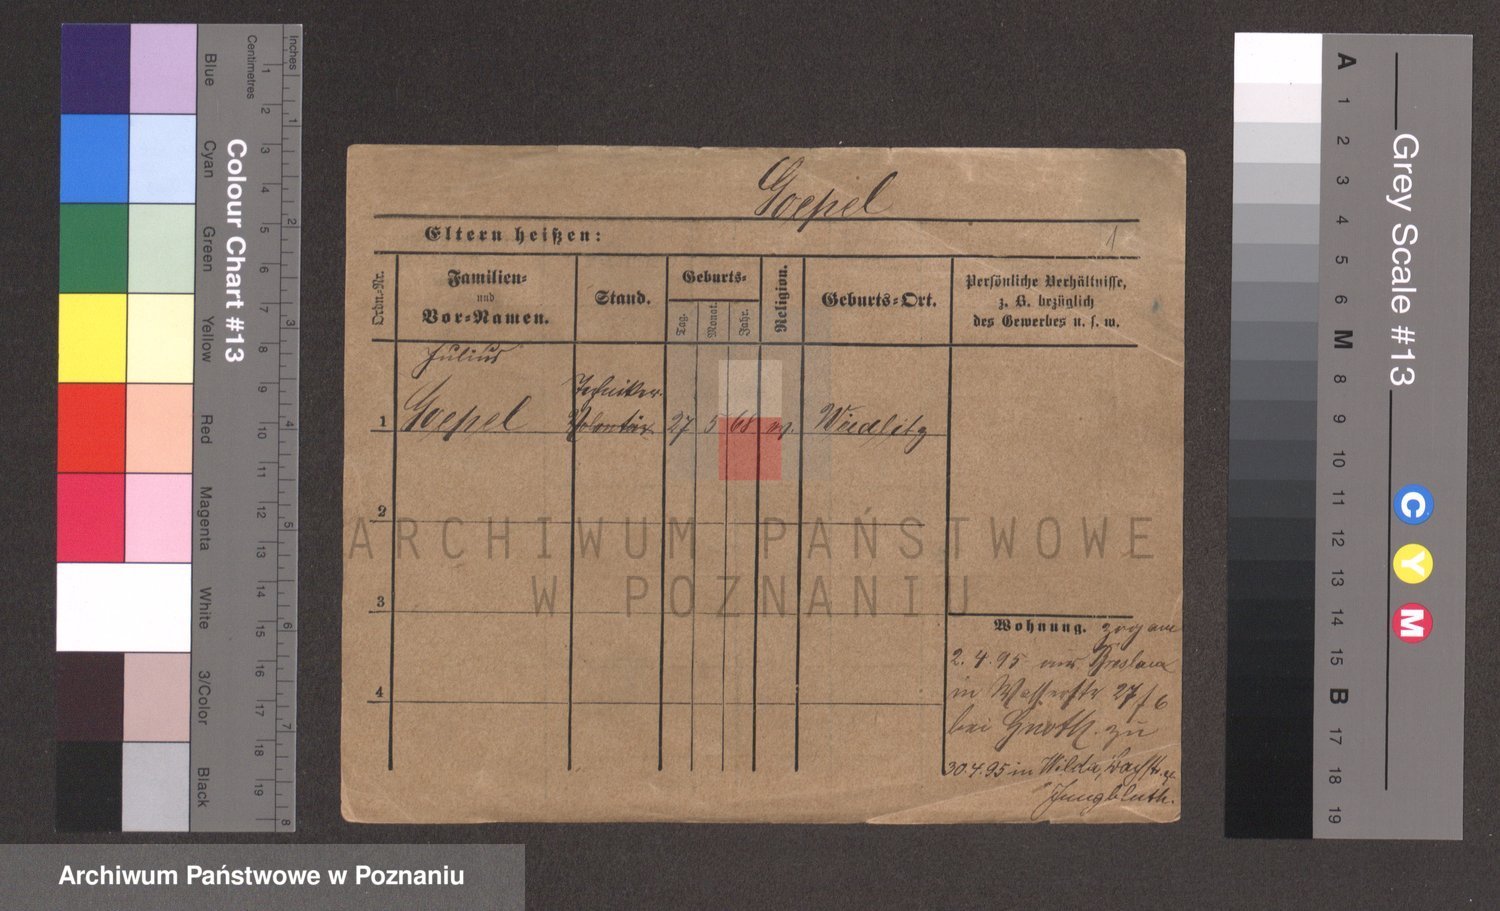 Goepel
Eltern heißen:
1
Ordn=Nr.
Familien=
und
Vor=Namen.
Stand.
Geburts=
Tag.
Monat.
Jahr.
Religion.
Geburts=Ort.
Persönliche Verhältnisse,
z. B. bezüglich
des Gewerbes u. s. w.
Julius
Techniker
1 Goepel Volontär 27 5 68 ev.
2
3
4
Wohnung. zog am
2.4.95 aus Breslau
in Wasserstr 27/6
bei Gnoth. zu
30.4.95 in Wilda,
Jungbluth.
ARCHIWUM PAŃSTWOWE
W POZNANIU
Archiwum Państwowe w Poznaniu
Colour Chart #13
Blue
Cyan
Green
Yellow
Red
Magenta
White
3/Color
Black
Centimetres
1 2 3 4 5 6 7 8 9 10 11 12 13 14 15 16 17 18 19
Inches
1 2 3 4 5 6 7 8
Grey Scale #13
A 1 2 3 4 5 6 M 8 9 10 11 12 13 14 15 B 17 18 19
C
Y
M